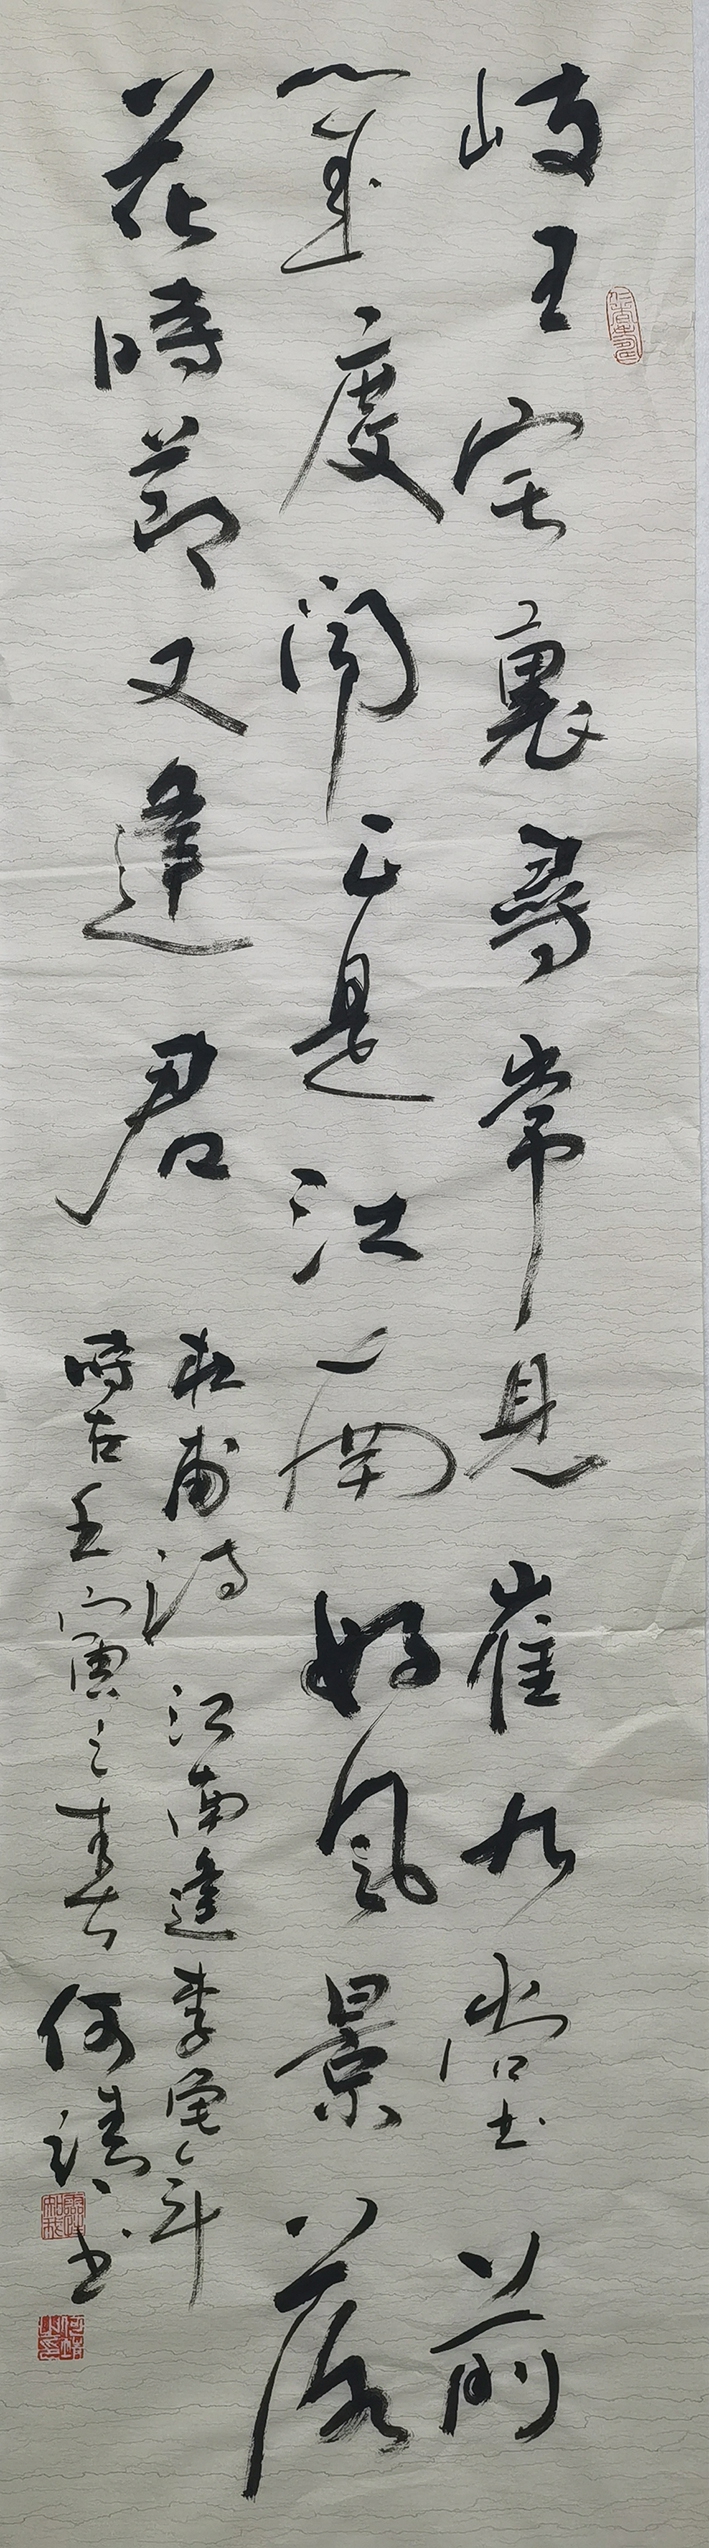 岐王宅裏尋常見崔九堂前
幾度聞正是江南好風景落
花時節又逢君
杜甫詩 江南逢李龜年
時在壬寅之春 何靖書